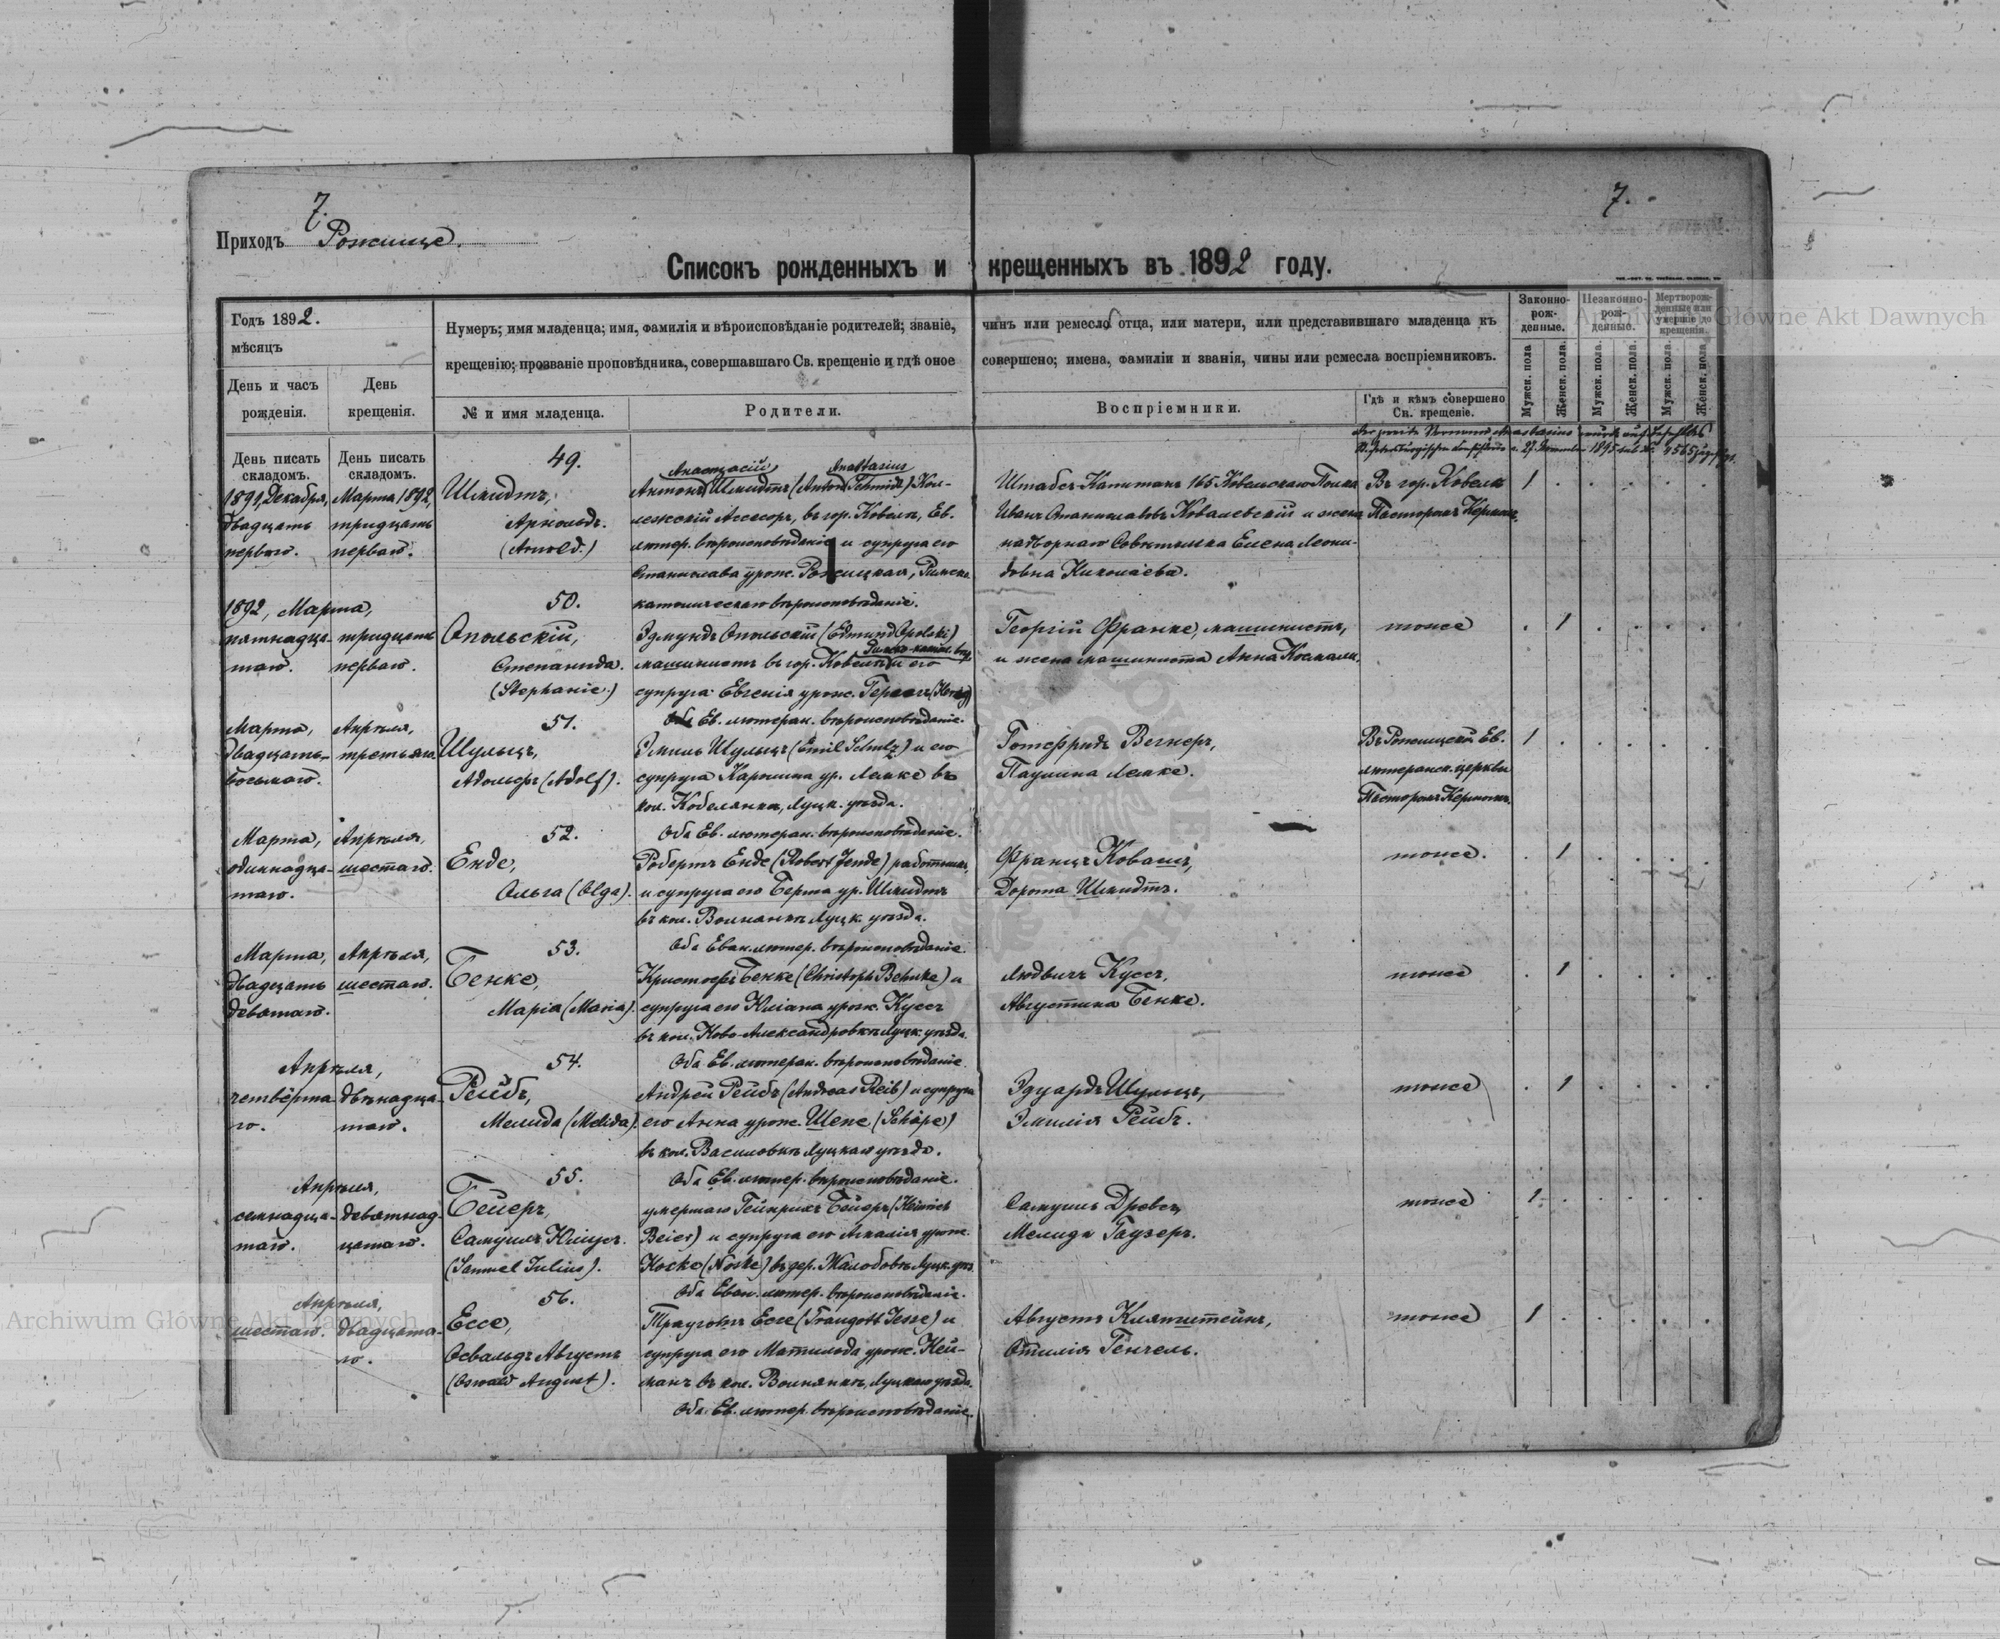 7.
7.
Приходъ Рожище.
Списокъ рожденныхъ и крещенныхъ въ 1892 году.
Годъ 1892.
мѣсяцъ
День и часъ рожденія.
День крещенія.
Нумеръ; имя младенца; имя, фамилія и вѣроисповѣданіе родителей; званіе, чинъ или ремесло отца, или матери, или представившаго младенца къ
крещенію; прозваніе проповѣдника, совершавшаго Св. крещеніе и гдѣ оное совершено; имена, фамиліи и званія, чины или ремесла воспріемниковъ.
№ и имя младенца.
Родители.
Воспріемники.
Гдѣ и кѣмъ совершено Св. крещеніе.
Законно-рож-денные.
Незаконно-рож-денные.
Мертворож-денные или умершіе до крещенія.
Мужск. пола
Женск. пола.
Мужск. пола.
Женск. пола.
Мужск. пола.
Женск. пола.
День писать складомъ.
День писать складомъ.
49.
1891, Декабря, двадцать перваго.
Марта 1892, тридцать перваго.
Шмидтъ,
Арнольдъ.
(Arnold.)
Анастасій Anastasius
Антонъ Шмидтъ (Anton Schmidt) Кол-
лежскій Ассесоръ, въ гор. Ковелѣ, Ев.
лютер. вѣроисповѣданіе и супруга его
Станислава урож. Рожицкая, Римско
католическаго вѣроисповѣданіе.
Штабсъ Капитанъ 165 Ковельскаго Полка
Иванъ Станиславовъ Ковалевскій и жена
надворнаго Совѣтника Елена Леони-
довна Николаева.
Въ гор. Ковелѣ
Пасторомъ
1
50.
1892, Марта,
пятнадца-
таго.
тридцать
перваго.
Опольскій,
Стефанида.
(Stephanie.)
Эдмундъ Опольскій (Edmund Opolski)
машинистъ въ гор. Ковелѣ и его
супруга Евгенія урож.
Ев. лютеран. вѣроисповѣданіе.
Георгій Франке, машинистъ,
и жена машиниста Анна
тоже
1
51.
Марта,
двадцать
восьмаго.
Апрѣля,
третьяго.
Шульцъ,
Адольфъ (Adolf).
Эмиль Шульцъ (Emil Schulz) и его
супруга Каролина ур. Лемке въ
кол. Кобелянка, Луцк. уѣзда.
Оба Ев. лютеран. вѣроисповѣданіе.
Готфридъ Вегнеръ,
Паулина Лемке.
Въ Рожищской Ев.
лютеранск. церкви
Пасторомъ
1
52.
Марта,
одиннадца-
таго.
Апрѣля,
шестаго.
Енде,
Ольга (Olga).
Робертъ Енде (Robert Jende) работникъ,
и супруга его Берта ур. Шмидтъ
въ кол. Волнянкѣ Луцк. уѣзда.
Оба Еван. лютер. вѣроисповѣданіе
Францъ
Дорота Шмидтъ.
тоже.
1
53.
Марта,
двадцать
девятаго.
Апрѣля,
шестаго.
Бенке,
Марія (Maria).
Христофъ Бенке (Christoph Behnke) и
супруга его Юліана урож. Куссъ
въ кол. Ново-Александровкѣ Луцк. уѣзда.
Оба Ев. лютеран. вѣроисповѣданіе
Людвигъ Куссъ,
Августина Бенке.
тоже
1
54.
Апрѣля,
четвёрта-
го.
двѣнадца-
таго.
Рейбъ,
Мелида (Melida).
Андрей Рейбъ (Andreas Reib) и супруга
его Анна урож. Шепе (Schäpe)
въ кол. Василовкѣ Луцкаго уѣзда.
Оба Ев. лютер. вѣроисповѣданіе.
Эдуардъ Шульцъ,
Эмилія Рейбъ.
тоже
1
55.
Апрѣля,
семнадца-
таго.
девятнад-
цатаго.
Бейеръ,
Самуилъ Юліусъ.
(Samuel Julius).
умершаго Гейнрихъ Бейеръ (Heinrich
Beier) и супруга его Амалія урож.
Носке (Noske) въ дер. Жалобовѣ Луцк. уѣз.
Оба Еван. лютер. вѣроисповѣданіе.
Самуилъ Древсъ,
Мелида Гаузеръ.
тоже
1
56.
Апрѣля,
шестаго.
двадцата-
го.
Ессе,
Освальдъ Августъ
(Oswald August).
Трауготъ Ессе (Traugott Jesse) и
супруга его Матильда урож. Ней-
манъ въ кол. Волнянкѣ, Луцкаго уѣзда.
Оба Ев. лютер. вѣроисповѣданіе.
Августъ Кляпштейнъ,
Отилія Генчель.
тоже
1
Archiwum Główne Akt Dawnych
Archiwum Główne Akt Dawnych